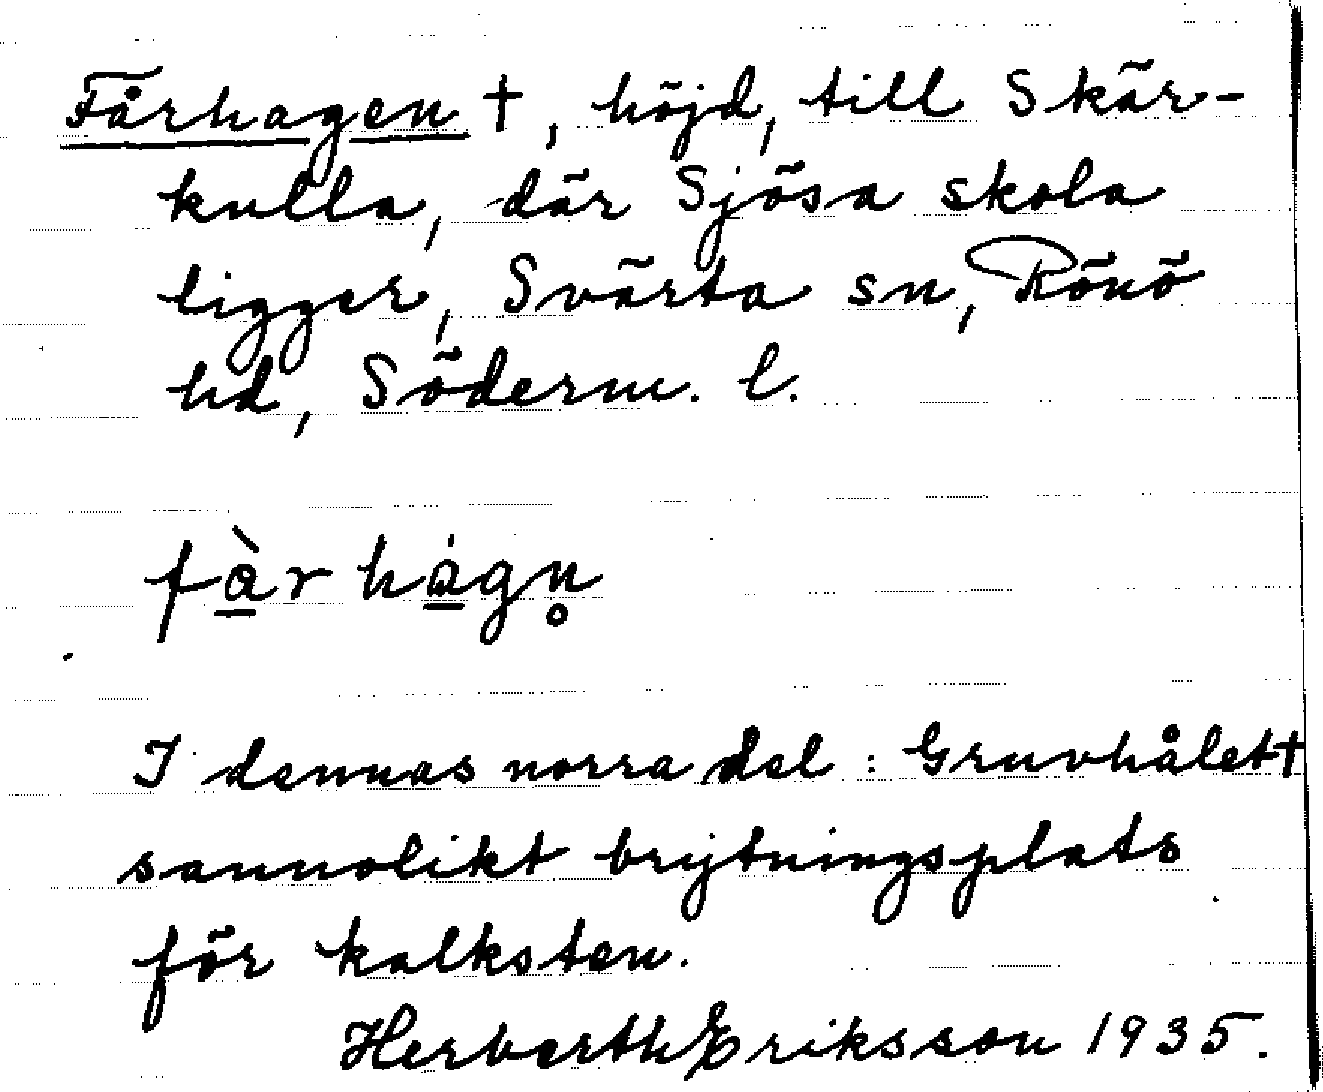 Fårhagen †, höjd, till Skär-
kulla, där Sjösa skola
ligger, Svärta sn, Rönö
hd, Söderm. l.
fàrhágn̥
I dennas norra del: Gruvhålet †
sannolikt brytningsplats
för kalksten.
Herberth Eriksson 1935.